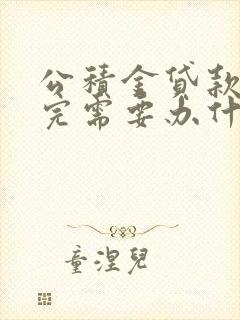 公積金貸款
完需要办什
童涅兒